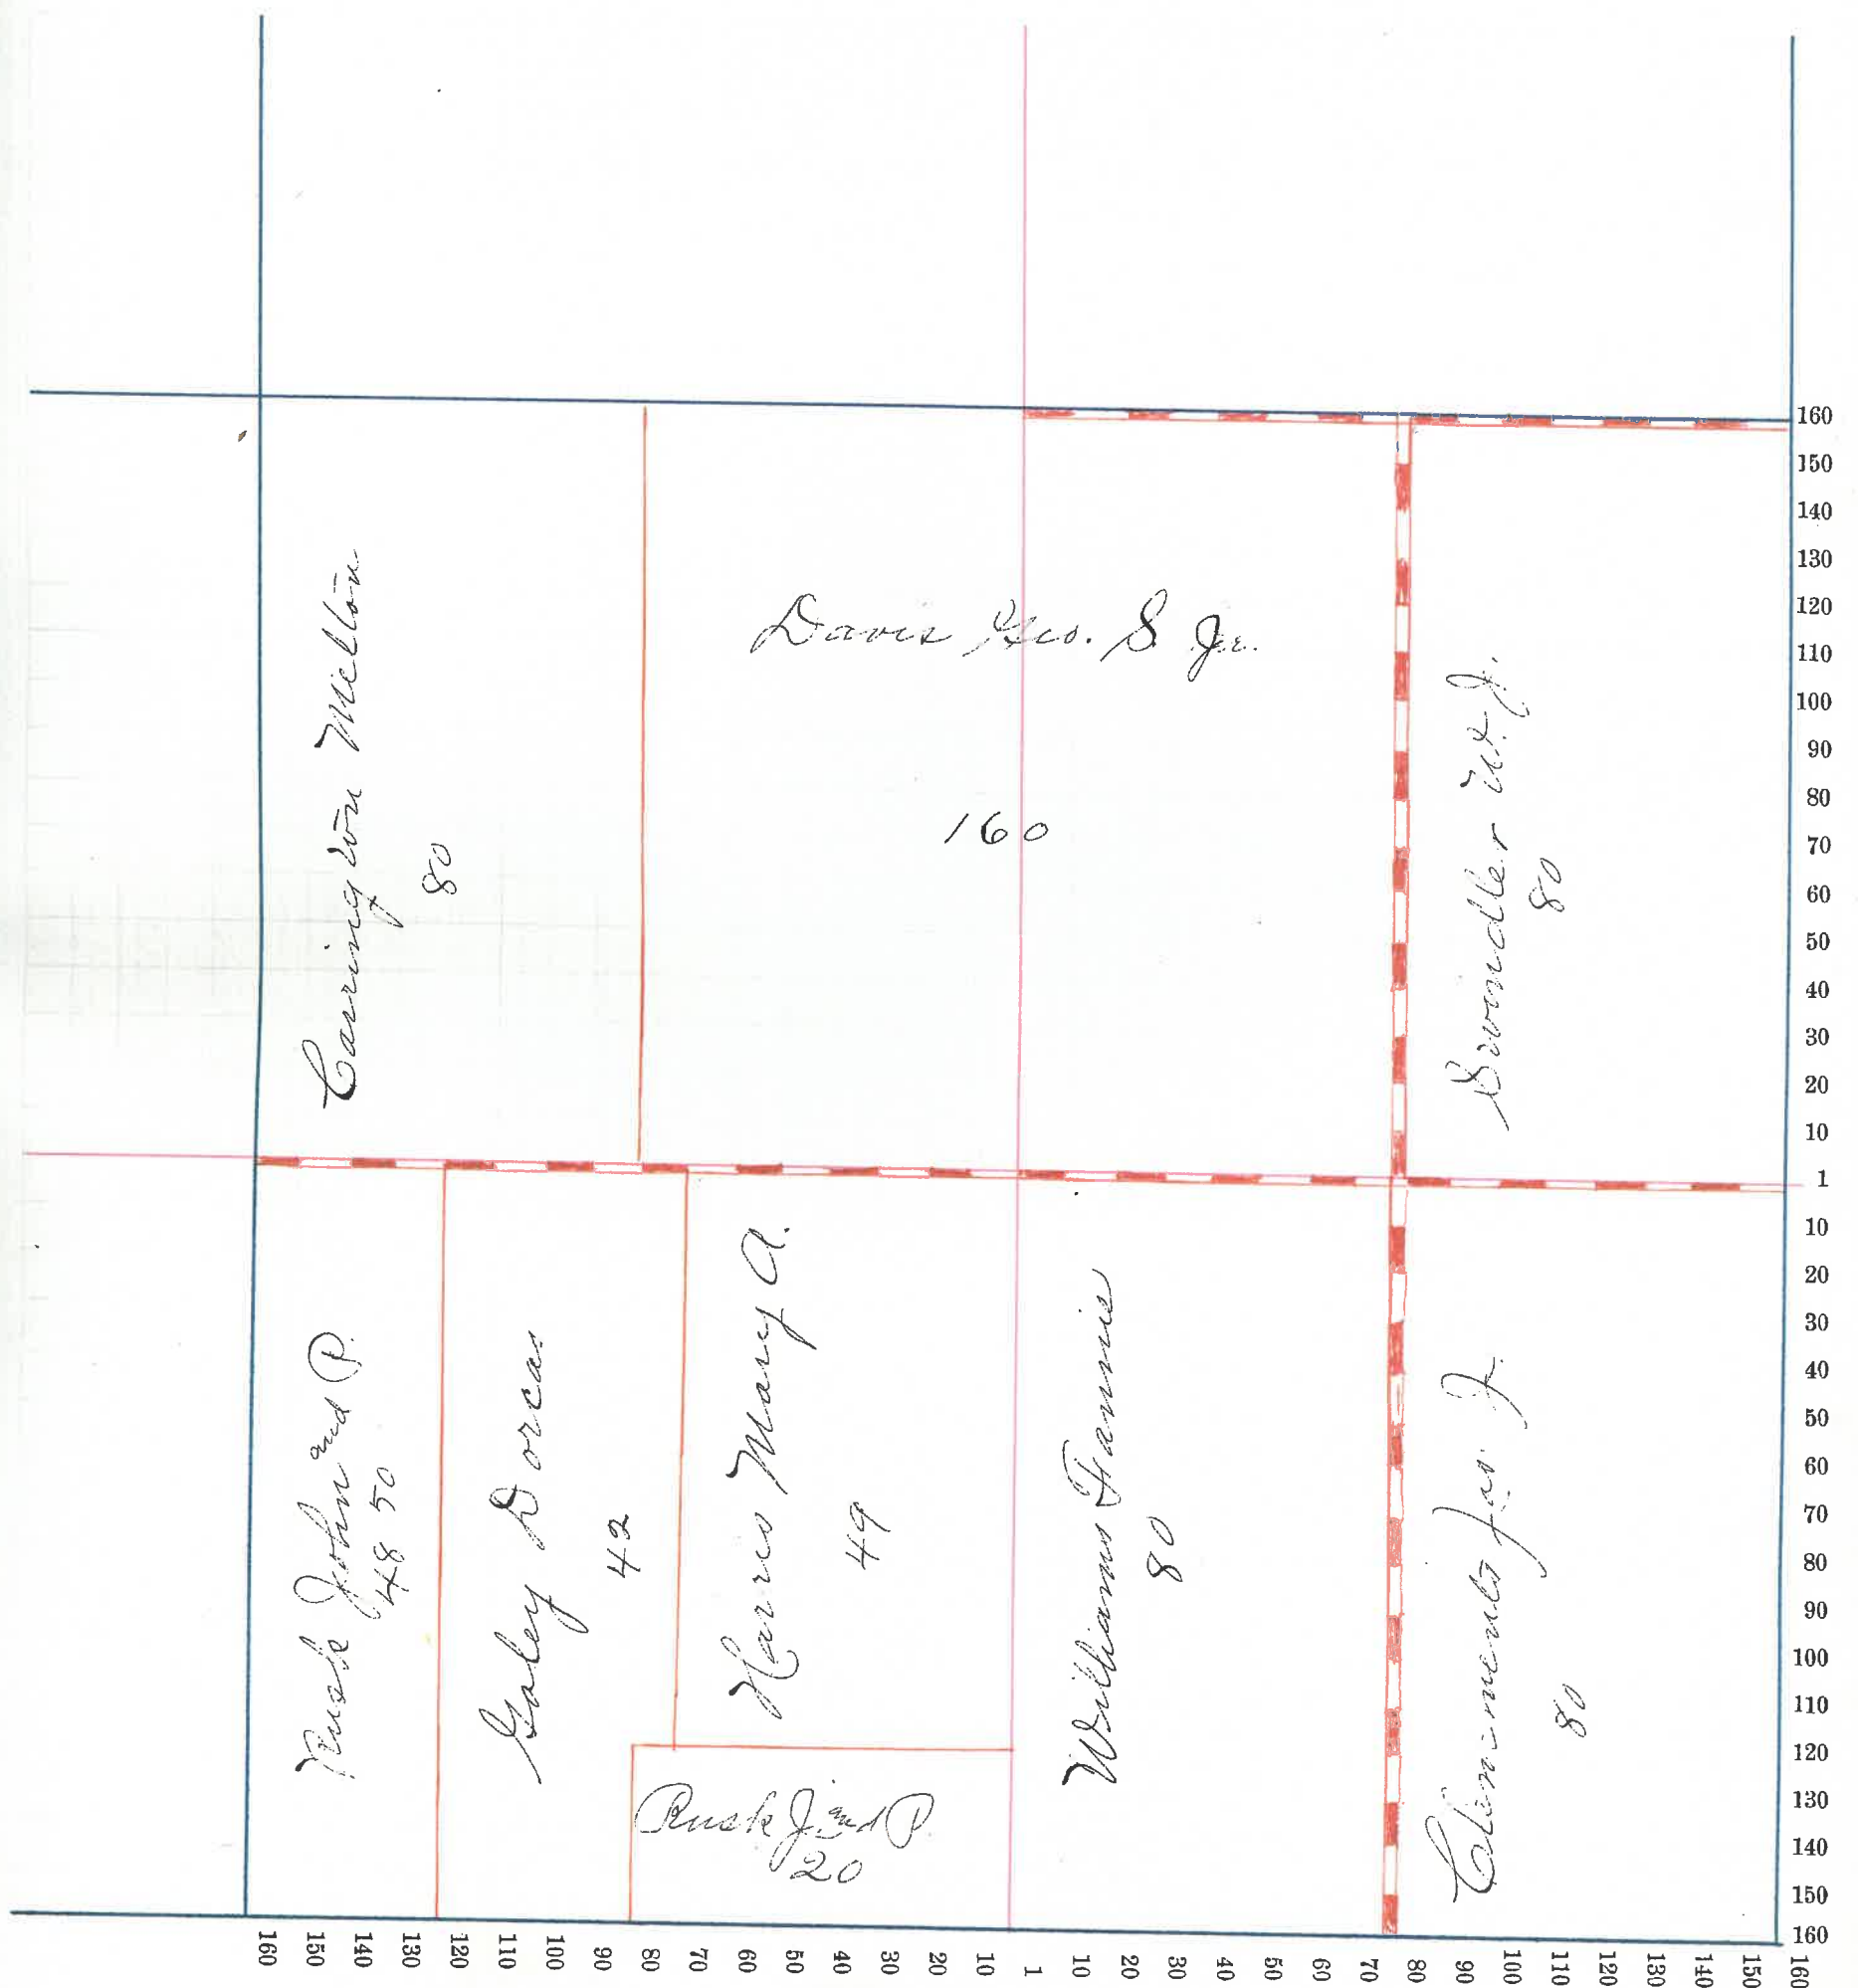 Carrington Milton
80
Davis Geo. S. Jr.
160
Swindler W. J.
80
Rusk John and P.
48 50
Galey Dorcas
42
Harris Mary A.
49
Rusk J. and P.
20
Williams Fannie
80
Clemments Jas. F.
80
160
150
140
130
120
110
100
90
80
70
60
50
40
30
20
10
1
10
20
30
40
50
60
70
80
90
100
110
120
130
140
150
160
160 150 140 130 120 110 100 90 80 70 60 50 40 30 20 10 1 10 20 30 40 50 60 70 80 90 100 110 120 130 140 150 160